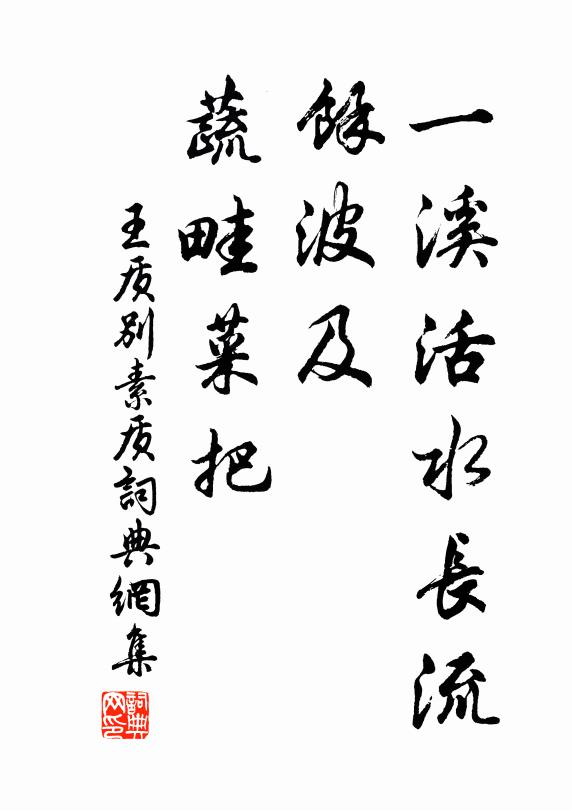 一溪活水長流
餘波及
蔬畦菜把
王质别素质詞典網集
詞典网印